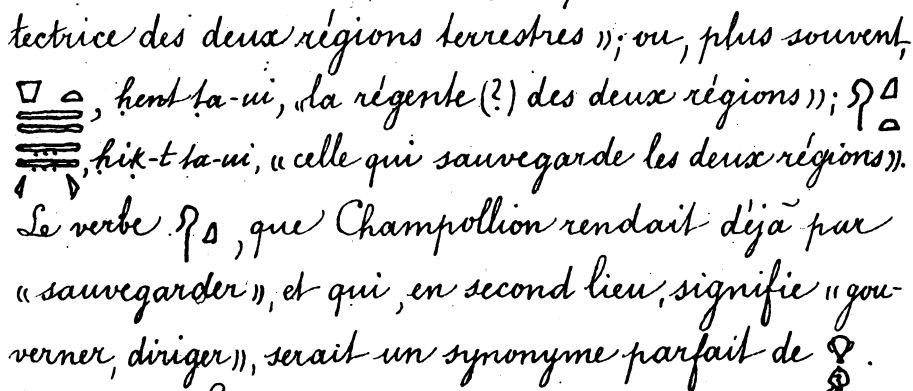 tectrice des deux régions terrestres »; ou, plus souvent,
, ḥent ta-ui, «la régente (?) des deux régions»;
, ḥiḳ-t ta-ui, « celle qui sauvegarde les deux régions».
Le verbe , que Champollion rendait déjà par
« sauvegarder », et qui, en second lieu, signifie « gou-
verner, diriger», serait un synonyme parfait de .